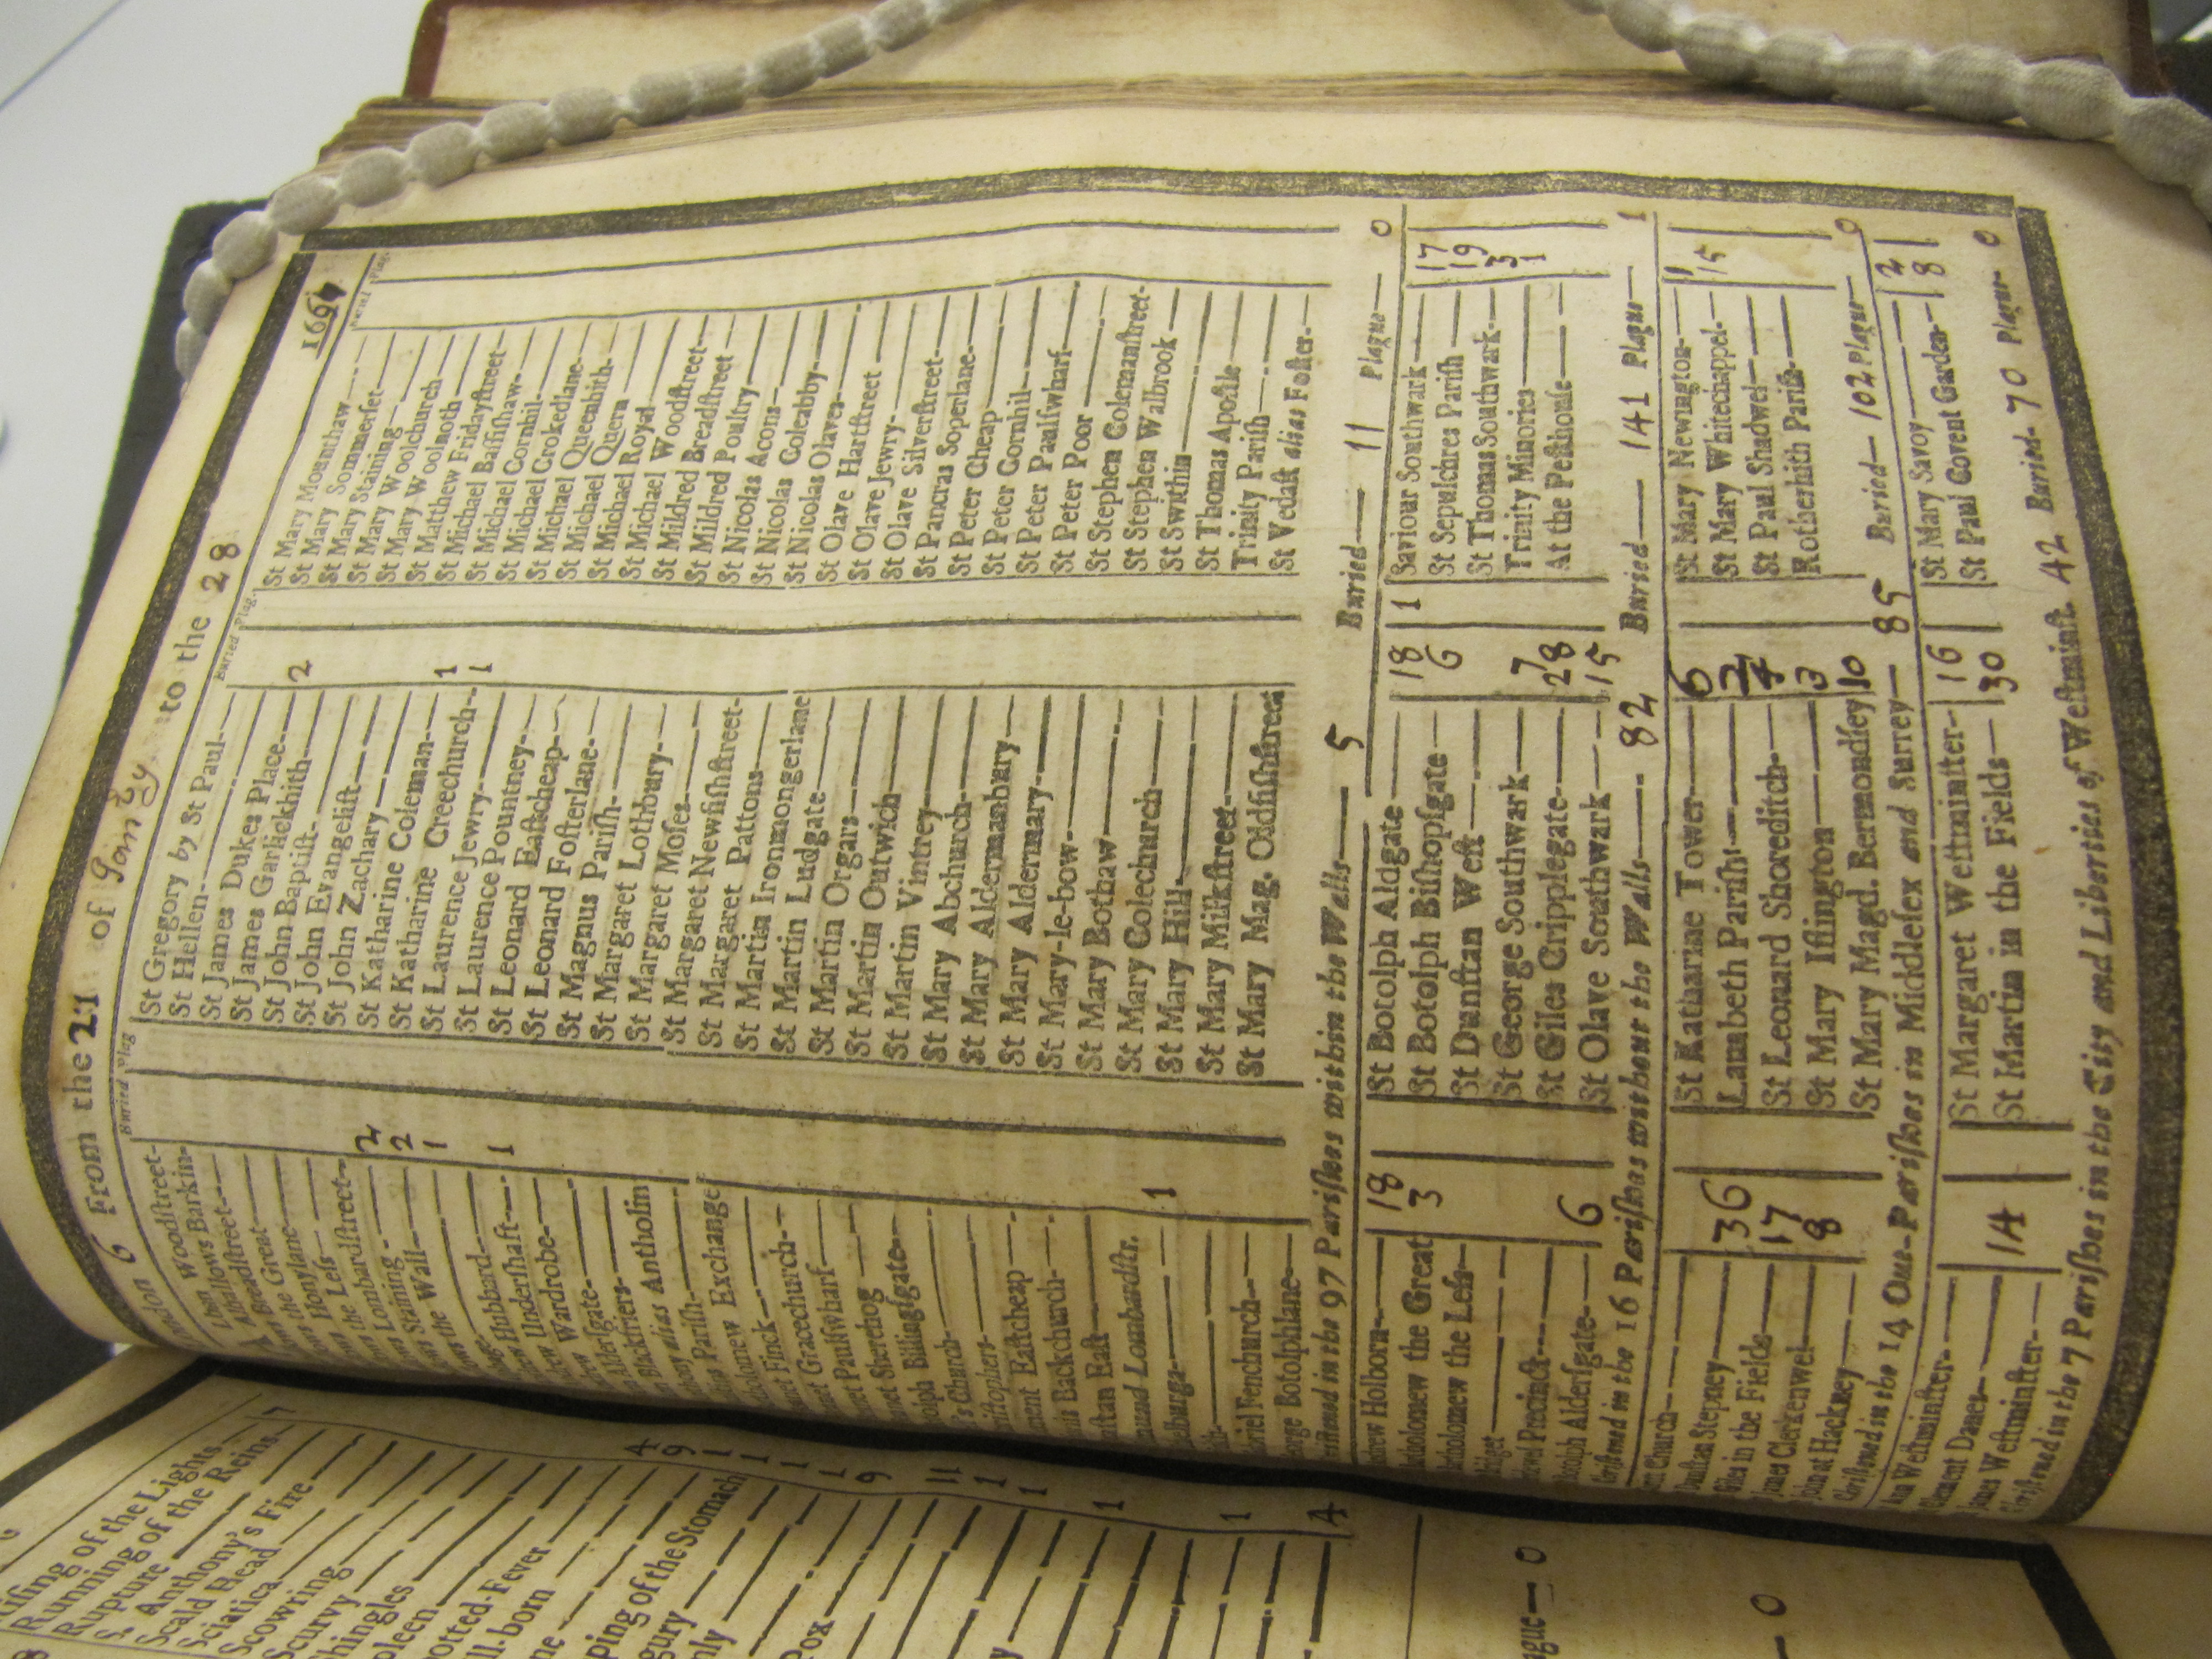 London 6 From the 21 of January to the 28 1664
Buried Plag
Buried Plag.
Buried Plag.
Woodstreet
Alhallows Barkin
Breadstreet
the Great
Honylane
the Less
Lombardstreet 2
Staining 2
the Wall 1
Hubbard 1
Undershaft
Wardrobe
Aldersgate
Blackfriers
alias Antholin
Parish
Bartholomew Exchange
Finck
Gracechurch
Paulswharf
Sherehog
Botolph Billingsgate
Church
ment Eastcheap
Backchurch
East
Lombardstr.
1
Fenchurch
George Botolphlane
St Gregory by St Paul
St Hellen
St James Dukes Place
St James Garlickhith 2
St John Baptist
St John Evangelist
St John Zachary
St Katharine Coleman 1
St Katharine Creechurch 1
St Laurence Jewry
St Laurence Pountney
St Leonard Eastcheap
St Leonard Fosterlane
St Magnus Parish
St Margaret Lothbury
St Margaret Moses
St Margaret Newfishstreet
St Margaret Pattons
St Martin Ironmongerlane
St Martin Ludgate
St Martin Orgars
St Martin Outwich
St Martin Vintrey
St Mary Abchurch
St Mary Aldermanbury
St Mary Aldermary
St Mary-le-bow
St Mary Bothaw
St Mary Colechurch
St Mary Hill
St Mary Milkstreet
St Mary Mag. Oldfishstreet
St Mary Mounthaw
St Mary Sommerset
St Mary Staining
St Mary Woolchurch
St Mary Woolnoth
St Matthew Fridaystreet
St Michael Bassishaw
St Michael Cornhil
St Michael Crokedlane
St Michael Queenhith
St Michael Quern
St Michael Royal
St Michael Woodstreet
St Mildred Breadstreet
St Mildred Poultry
St Nicolas Acons
St Nicolas Coleabby
St Nicolas Olaves
St Olave Hartstreet
St Olave Jewry
St Olave Silverstreet
St Pancras Soperlane
St Peter Cheap
St Peter Cornhil
St Peter Paulswharf
St Peter Poor
St Stephen Colemanstreet
St Stephen Walbrook
St Swithin
St Thomas Apostle
Trinity Parish
St Vedast alias Foster
Christned in the 97 Parishes within the Walls 5 Buried 11 Plague 0
Andrew Holborn 18
Bartholomew the Great 3
Bartholomew the Less
Bridget
Bridewel Precinct
Botolph Aldersgate 6
St Botolph Aldgate 18 1
St Botolph Bishopsgate 6
St Dunstan West
St George Southwark 7
St Giles Cripplegate 28
St Olave Southwark 15
Saviour Southwark 17
St Sepulchres Parish 19
St Thomas Southwark 3
Trinity Minories 1
At the Pesthouse
Christned in the 16 Parishes without the Walls 82 Buried 141 Plague 1
Christ Church
Dunstan Stepney 36
Giles in the Fields 17
James Clerkenwel 8
John at Hackney
St Katharine Tower 6
Lambeth Parish 2
St Leonard Shoreditch 4
St Mary Islington 3
St Mary Magd. Bermondsey 10
St Mary Newington 1
St Mary Whitechappel 15
St Paul Shadwel
Rotherhith Parish
Christned in the 14 Out-Parishes in Middlesex and Surrey 85 Buried 102 Plague 0
Ann Westminster
Clement Danes 14
James Westminster
St Margaret Westminster 16
St Martin in the Fields 30
St Mary Savoy 2
St Paul Covent Garden 8
Christned in the 7 Parishes in the City and Liberties of Westminst. 42 Buried 70 Plague 0
Rising of the Lights
Running of the Reins
Rupture
S. Anthony's Fire
Scald Head
Sciatica
Scowring
Scurvy
Shingles
Spleen
Spotted Fever
Still-born
Stopping of the Stomach
Plague 0
0